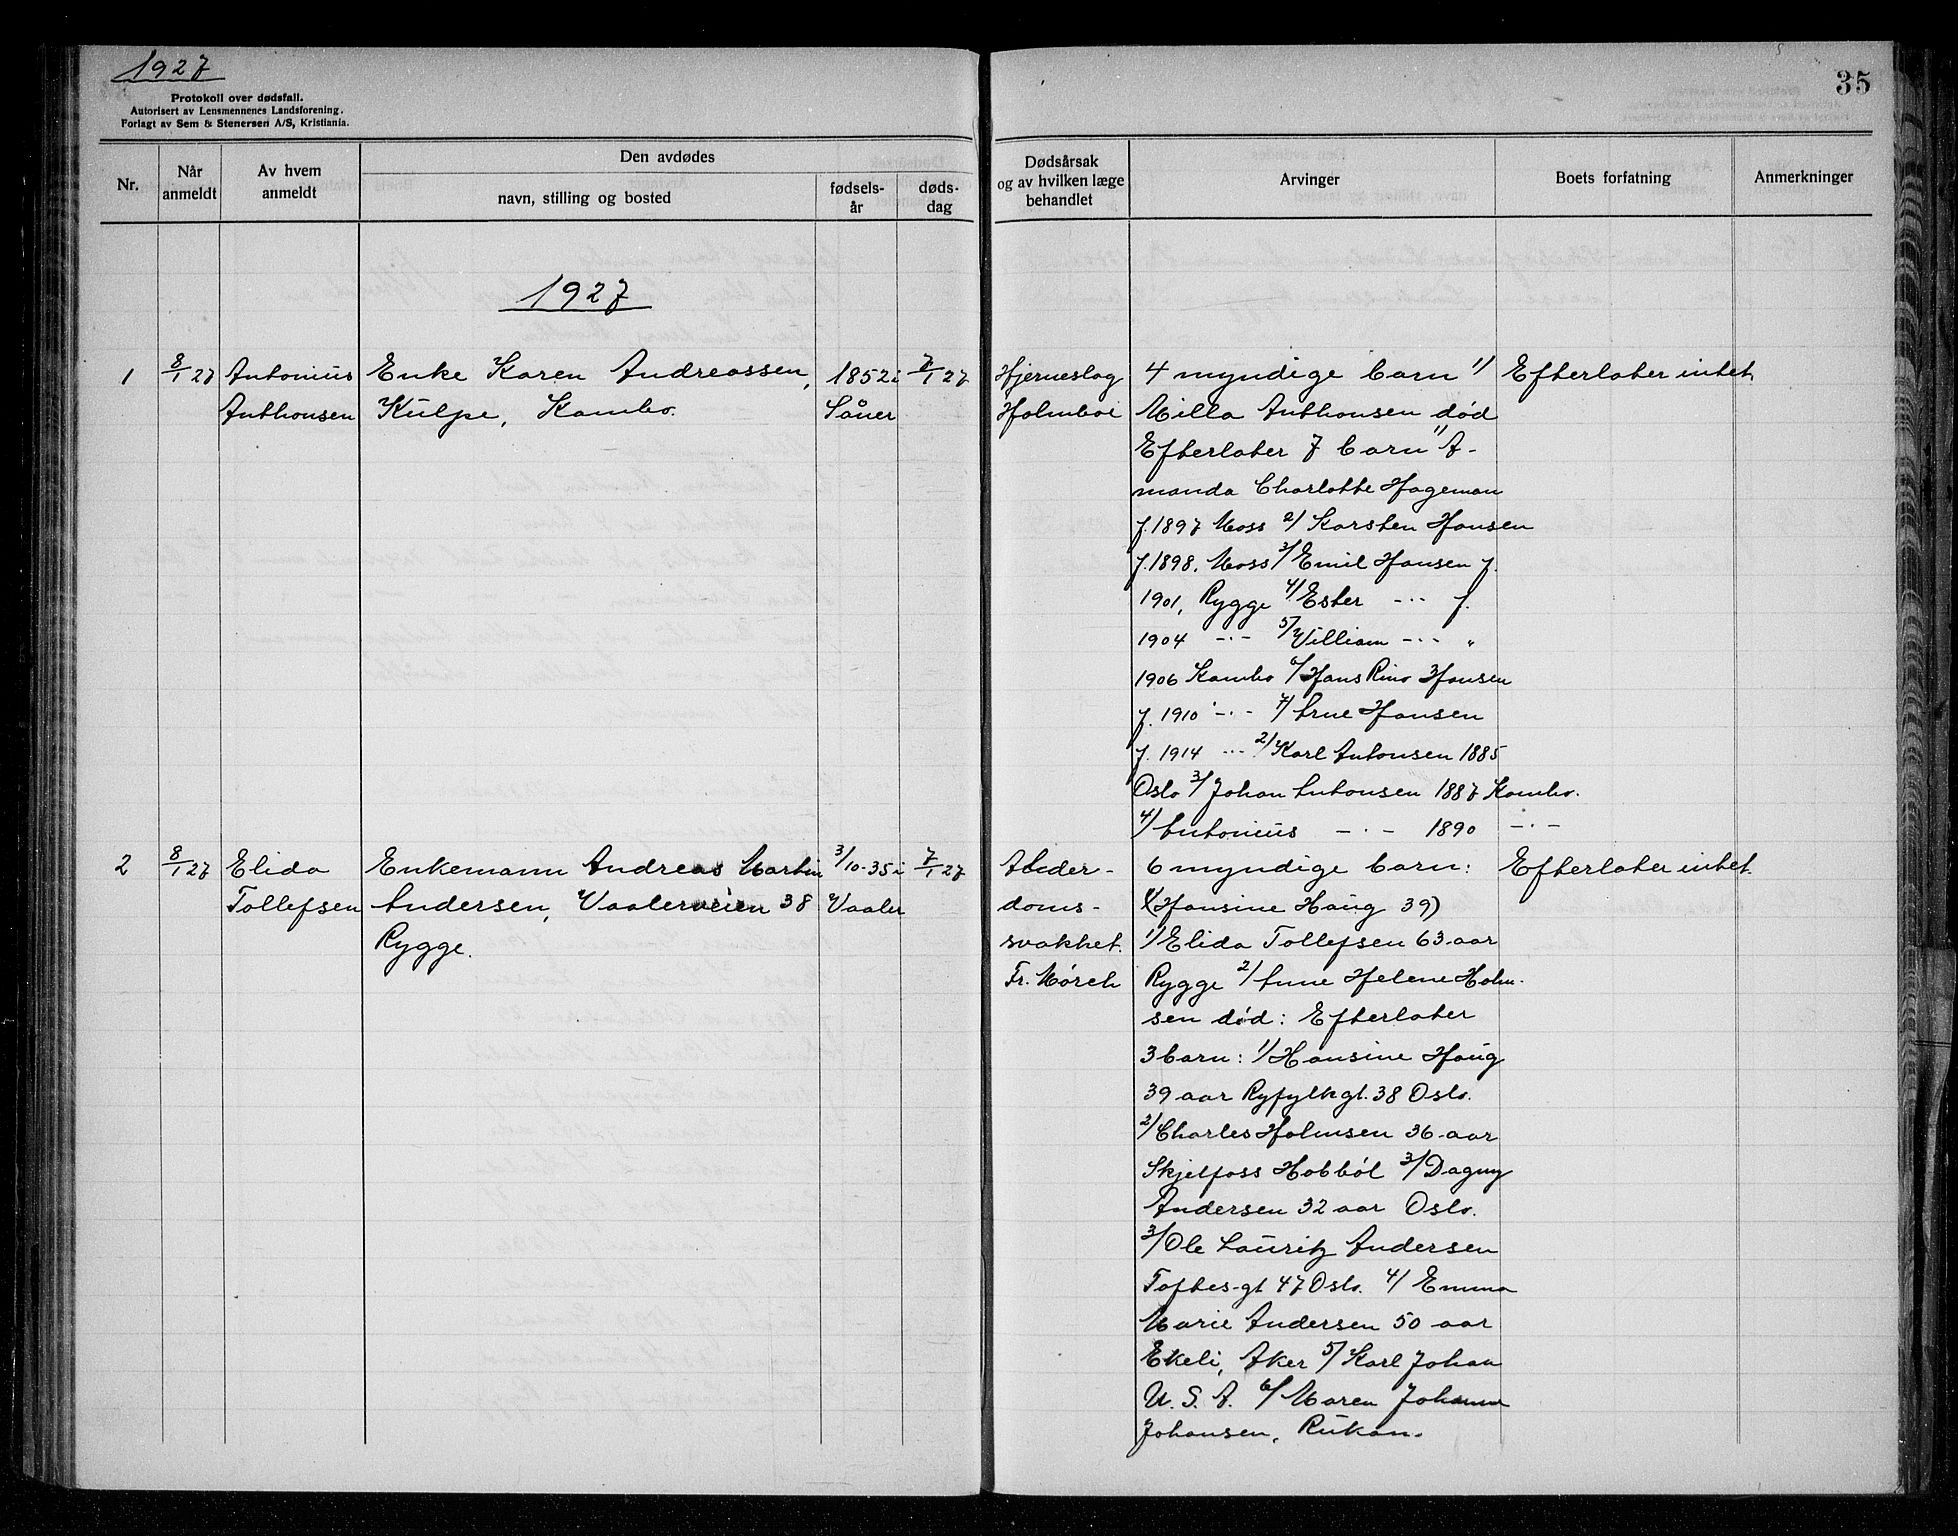 1927
Protokoll over dødsfall.
Autorisert av Lensmennenes Landsforening.
Forlagt av Sem & Stenersen A/S, Kristiania.
35
Nr.
Når anmeldt
Av hvem anmeldt
Den avdødes
navn, stilling og bosted
fødsels-år
døds-dag
Dødsårsak og av hvilken læge behandlet
Arvinger
Boets forfatning
Anmerkninger
1927
1
8/1 27
Antonius
Anthonsen
Enke Karen Andreassen,
Kulpe, Kambo.
1852 i
Såner
7/1 27
Hjerneslag
Holmboe
4 myndige barn 1/
Milla Anthonsen død
Efterlater 7 barn 1/ A-
manda Charlotte Hageman
f. 1897 Moss 2/ Karsten Hansen
f. 1898. Moss 3/ Emil Hansen f.
1901, Rygge 4/ Ester -"- f.
1904 -"- 5/ William -"- "
1906 Kambo 6/ Hans Rino Hansen
f. 1910 -"- 7/ Arne Hansen
f. 1914 -"- 2/ Karl Antonsen 1885
Oslo 3/ Johan Antonsen 1887 Kambo.
4/ Antonius -"- 1890 -"-
Efterlater intet.
2
8/1 27
Elida
Tollefsen
Enkemann Andreas Martin
Andersen, Vaalerveien 38
Rygge.
3/10-35 i
Vaaler
7/1 27
Alder-
doms-
svakhet.
Fr. Mørch
6 myndige barn:
1/(Hansine Haug 39)
1/ Elida Tollefsen 63 aar
Rygge 2/ Anne Helene Holm-
sen død: Efterlater
3 barn: 1/ Hansine Haug
39 aar Ryfylkgt. 38 Oslo.
2/ Charles Holmsen 36 aar
Skjelfoss Hobböl 3/ Dagny
Andersen 32 aar Oslo.
3/ Ole Lauritz Andersen
Toftes-gt 47 Oslo. 4/ Emma
Marie Andersen 50 aar
Ekeli, Aker 5/ Karl Johan
U. S. A. 6/ Maren Johanne
Johansen, Rukan.
Efterlater intet.